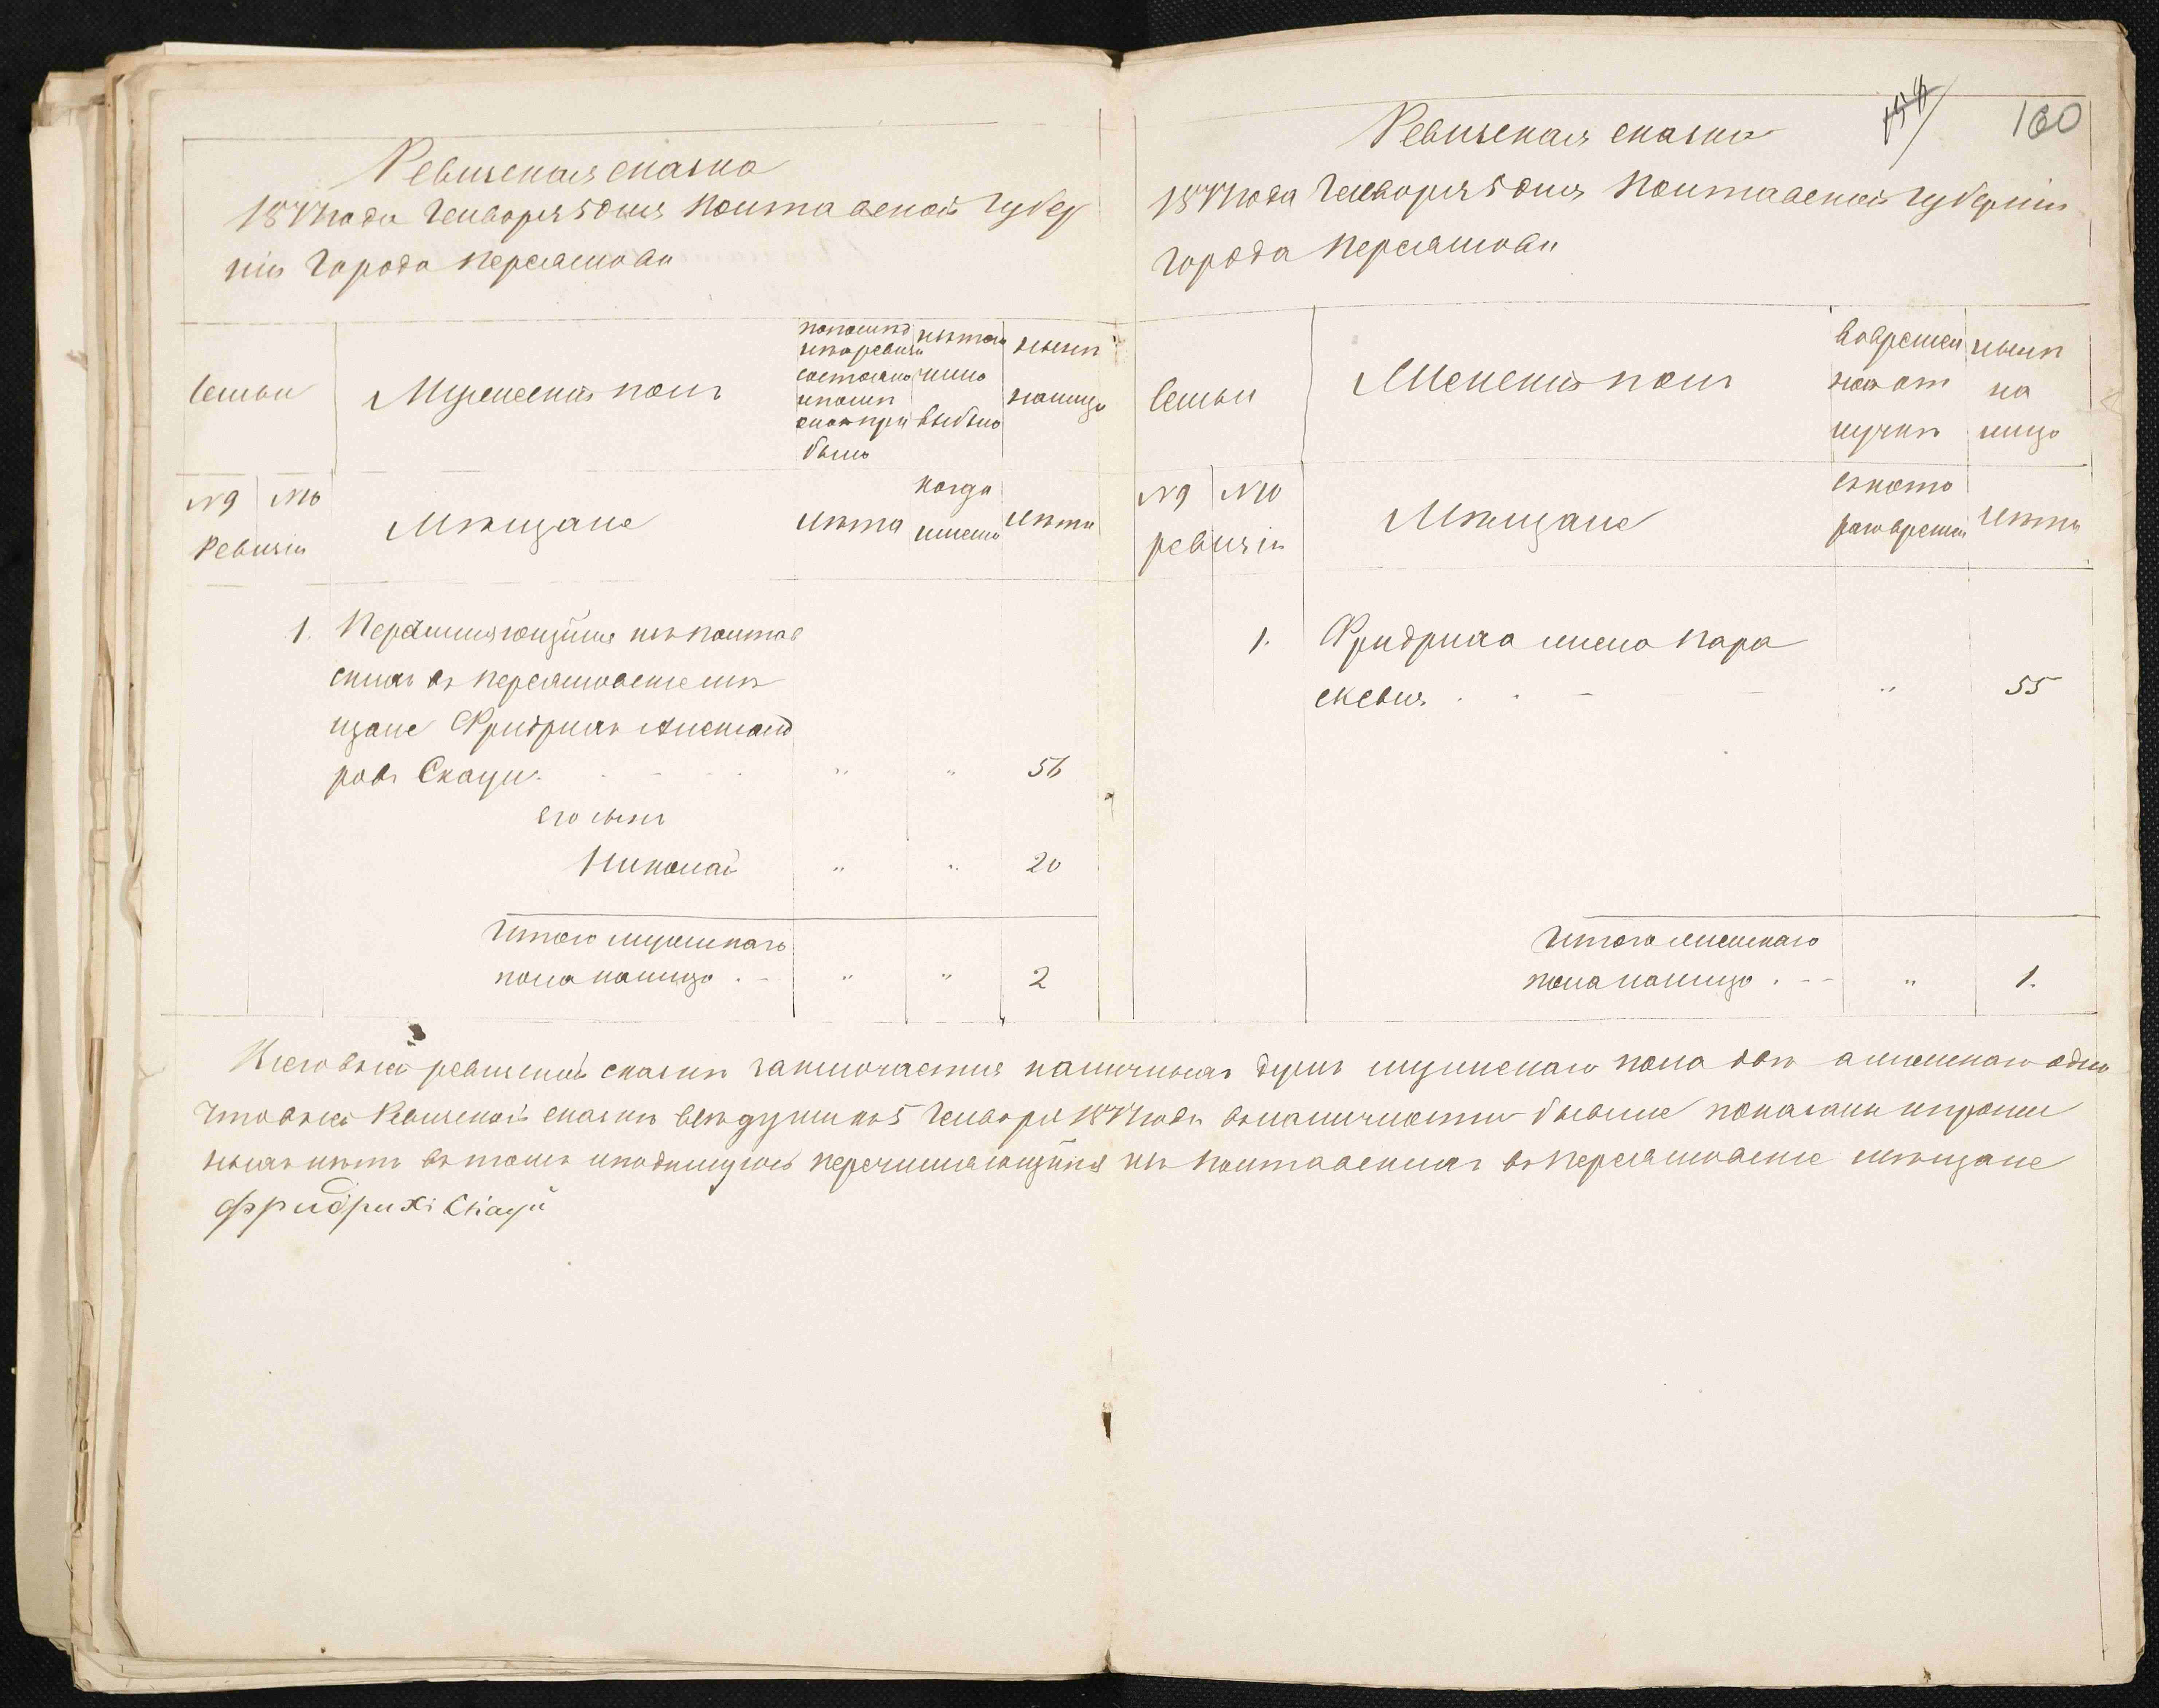 Ревизская сказка
187 года Генваря 5 дня Полтавской Губер
ніи Города Переяслова
Семьи
Мужескій полъ
по послѣд
ней ревизіи
состояло
и послѣ
оной при
было
изъ того
числа
выбыло
нынѣ
налицо
№ 9 № 10
Ревизіи
Мѣщане
Лѣта
когда
именно
Лѣта
1. Перечисляющійся изъ Полтав
скихъ въ Переяславскіе мѣ
щане Фридрихъ Александ
ровъ Скаци " " 56
его сынъ
Николай " " 20
Итого мужескаго
пола налицо " " 2
160
Ревизская сказка
187 года Генваря 5 дня Полтавской губерніи
города Переяслова
Семьи
Женскій полъ
во времен
ной от
лучкѣ
нынѣ
на
лицо
№ 9 № 10
ревизіи
Мѣщане
съ кото
раго времени
Лѣта
1. Фридриха жена Пара
скевія " 55
Итого женскаго
пола налицо " 1.
Ксего въ сей ревизской сказкѣ заключается наличныхъ душъ мужескаго пола двѣ а женскаго одна
Что въ сей Ревизской сказкѣ всѣ души къ 5 Генваря 187 года въ наличности бывшіе показаны и пропи
ныхъ нѣтъ въ томъ и подпишуюсь перечисляющійся изъ Полтавскихъ въ Переяславскіе мѣщане
Фридрихъ Скаци